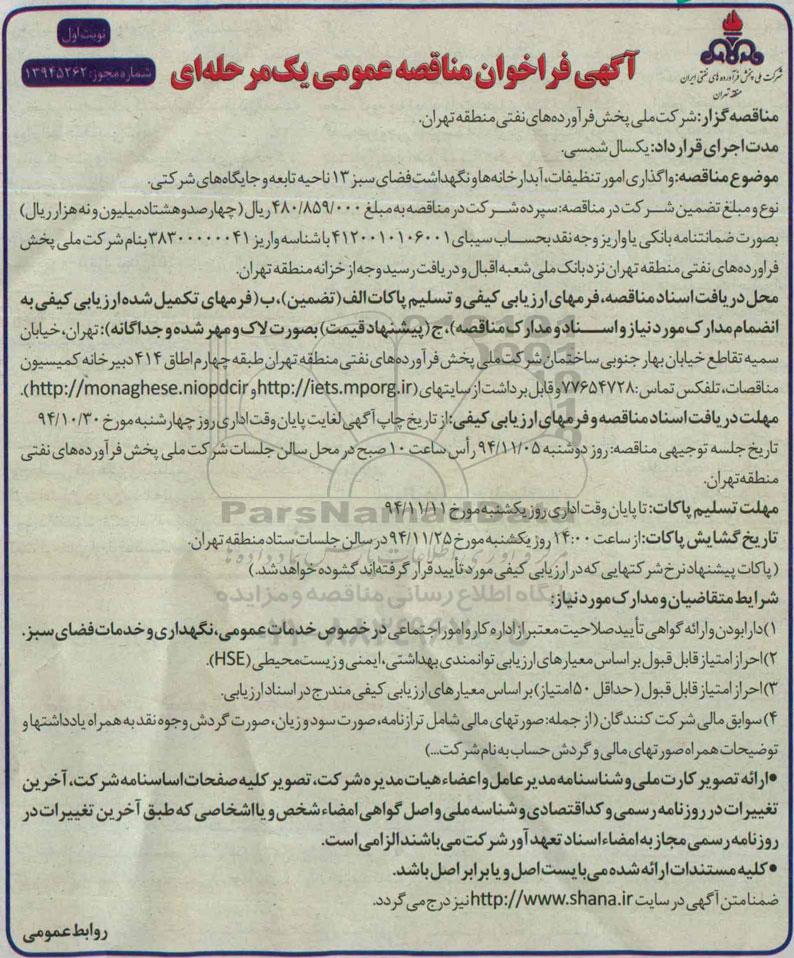 نوبت اول
شماره مجوز: ۱۳۹۴۵۲۶۲
شرکت ملی پخش فرآورده های نفتی ایران
منطقه تهران
آگهی فراخوان مناقصه عمومی یک مرحله‌ای
مناقصه گزار: شرکت ملی پخش فرآورده‌های نفتی منطقه تهران.
مدت اجرای قرارداد: یکسال شمسی.
موضوع مناقصه: واگذاری امور تنظیفات، آبدارخانه‌ها و نگهداشت فضای سبز ۱۳ ناحیه تابعه و جایگاه‌های شرکتی.
نوع و مبلغ تضمین شرکت در مناقصه: سپرده شرکت در مناقصه به مبلغ ۴۸۰/۸۵۹/۰۰۰ ریال (چهارصد و هشتاد میلیون و نه هزار ریال)
بصورت ضمانتنامه بانکی یا واریز وجه نقد بحساب سیبای ۴۱۲۰۰۱۰۱۰۶۰۰۱ با شناسه واریز ۳۸۳۰۰۰۰۰۰۰۴۱ بنام شرکت ملی پخش
فراورده‌های نفتی منطقه تهران نزد بانک ملی شعبه اقبال و دریافت رسید وجه از خزانه منطقه تهران.
محل دریافت اسناد مناقصه، فرمهای ارزیابی کیفی و تسلیم پاکات الف (تضمین)، ب (فرمهای تکمیل شده ارزیابی کیفی به
انضمام مدارک مورد نیاز و اسناد و مدارک مناقصه)، ج (پیشنهاد قیمت) بصورت لاک و مهر شده و جداگانه): تهران، خیابان
سمیه تقاطع خیابان بهار جنوبی ساختمان شرکت ملی پخش فرآورده‌های نفتی منطقه تهران طبقه چهارم اطاق ۴۱۴ دبیرخانه کمیسیون
مناقصات، تلفکس تماس: ۷۷۶۵۴۷۲۸ و قابل برداشت از سایتهای (http://iets.mporg.ir و http://monaghese.niopdcir).
مهلت دریافت اسناد مناقصه و فرمهای ارزیابی کیفی: از تاریخ چاپ آگهی لغایت پایان وقت اداری روز چهارشنبه مورخ ۹۴/۱۰/۳۰
تاریخ جلسه توجیهی مناقصه: روز دوشنبه ۹۴/۱۱/۰۵ رأس ساعت ۱۰ صبح در محل سالن جلسات شرکت ملی پخش فرآورده‌های نفتی
منطقه تهران.
مهلت تسلیم پاکات: تا پایان وقت اداری روز یکشنبه مورخ ۹۴/۱۱/۱۱
ParsNamadData
تاریخ گشایش پاکات: از ساعت ۱۴:۰۰ روز یکشنبه مورخ ۹۴/۱۱/۲۵ در سالن جلسات ستاد منطقه تهران.
(پاکات پیشنهاد نرخ شرکتهایی که در ارزیابی کیفی مورد تأیید قرار گرفته‌اند گشوده خواهد شد.)
پایگاه اطلاع رسانی مناقصه و مزایده
شرایط متقاضیان و مدارک مورد نیاز:
۱) دارا بودن و ارائه گواهی تأیید صلاحیت معتبر از اداره کار و امور اجتماعی در خصوص خدمات عمومی، نگهداری و خدمات فضای سبز.
۲) احراز امتیاز قابل قبول بر اساس معیارهای ارزیابی توانمندی بهداشتی، ایمنی و زیست محیطی (HSE).
۳) احراز امتیاز قابل قبول (حداقل ۵۰ امتیاز) بر اساس معیارهای ارزیابی کیفی مندرج در اسناد ارزیابی.
۴) سوابق مالی شرکت کنندگان (از جمله: صورتهای مالی شامل ترازنامه، صورت سود و زیان، صورت گردش وجوه نقد به همراه یادداشتها و
توضیحات همراه صورتهای مالی و گردش حساب به نام شرکت...)
• ارائه تصویر کارت ملی و شناسنامه مدیرعامل و اعضاء هیات مدیره شرکت، تصویر کلیه صفحات اساسنامه شرکت، آخرین
تغییرات در روزنامه رسمی و کد اقتصادی و شناسه ملی و اصل گواهی امضاء شخص و یا اشخاصی که طبق آخرین تغییرات در
روزنامه رسمی مجاز به امضاء اسناد تعهدآور شرکت می‌باشند الزامی است.
• کلیه مستندات ارائه شده می‌بایست اصل و یا برابر اصل باشد.
ضمنا متن آگهی در سایت http://www.shana.ir نیز درج می گردد.
روابط عمومی